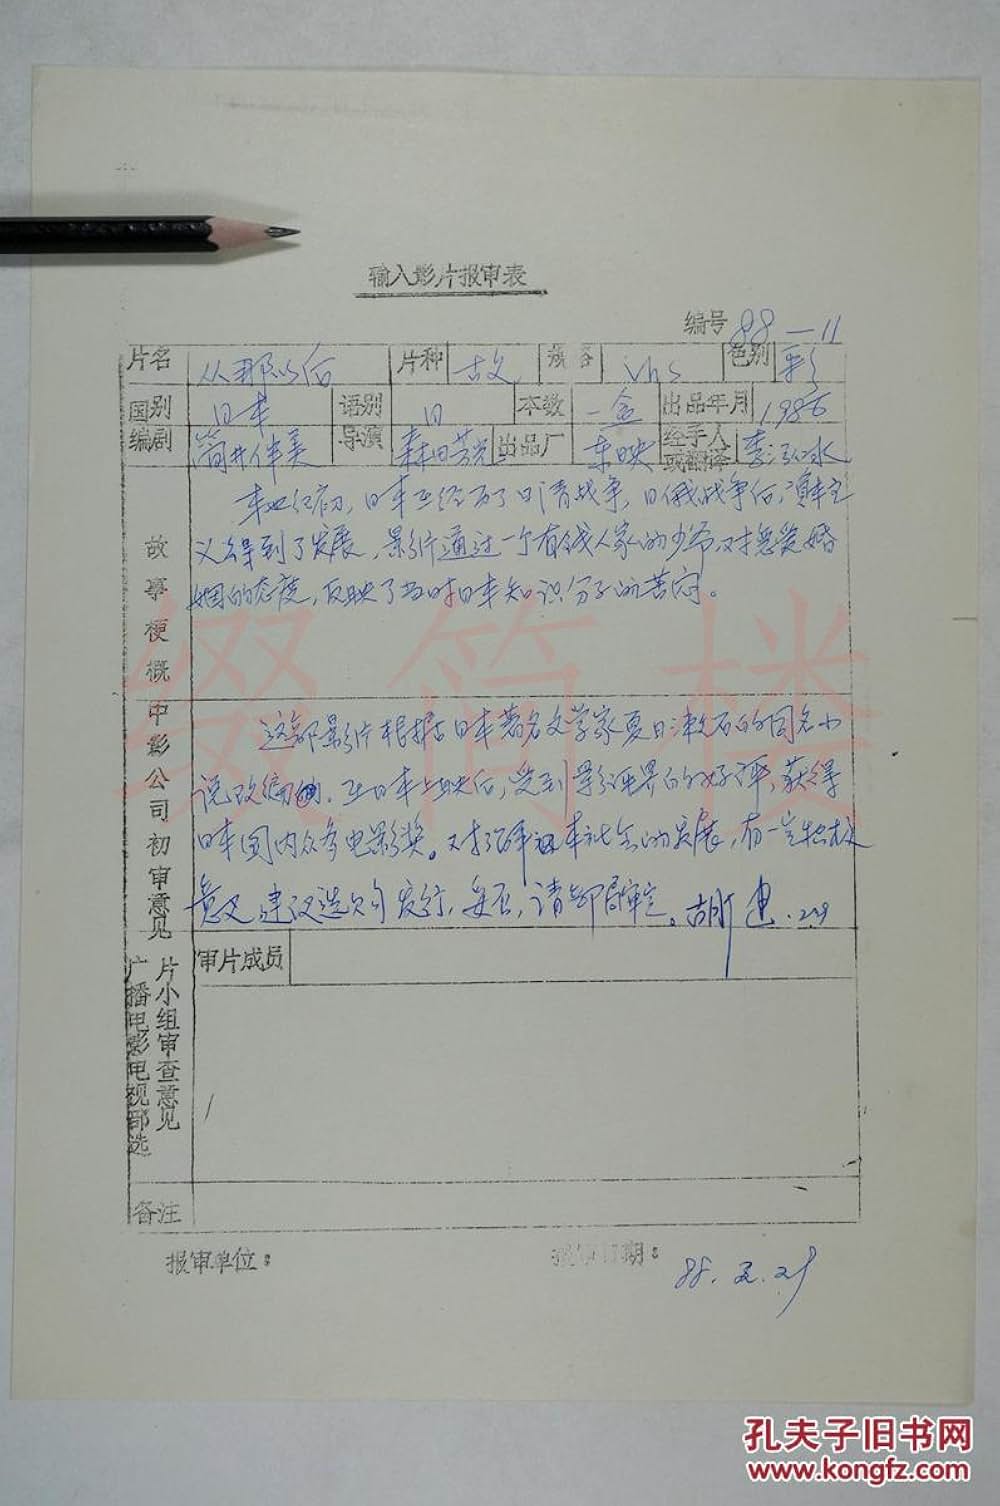 输入影片报审表
编号 88—11
片名 从那以后 片种 故 规格 Vhs 色别 彩
国别 日本 语别 日 本数 一盒 出品年月 1986
编剧 筒井伴美 导演 森田芳光 出品厂 东映 经手人或翻译 李泓冰
故事梗概
本世纪初，日本在经历了日清战争，日俄战争后，资本主
义得到了发展，影片通过一个有钱人家的少爷对恋爱婚
姻的态度，反映了当时日本知识分子的苦闷。
中影公司初审意见
这部影片根据日本著名文学家夏目漱石的同名小
说改编的。在日本上映后，受到影评界的好评，获得
日本国内众多电影奖。对了解日本社会的发展，有一定
意义，建议选入可发行，妥否，请部局审定。胡
广播电影电视部选片小组审查意见
审片成员
备注
报审单位：
报审日期：88.2.29
缀简楼
孔夫子旧书网
www.kongfz.com